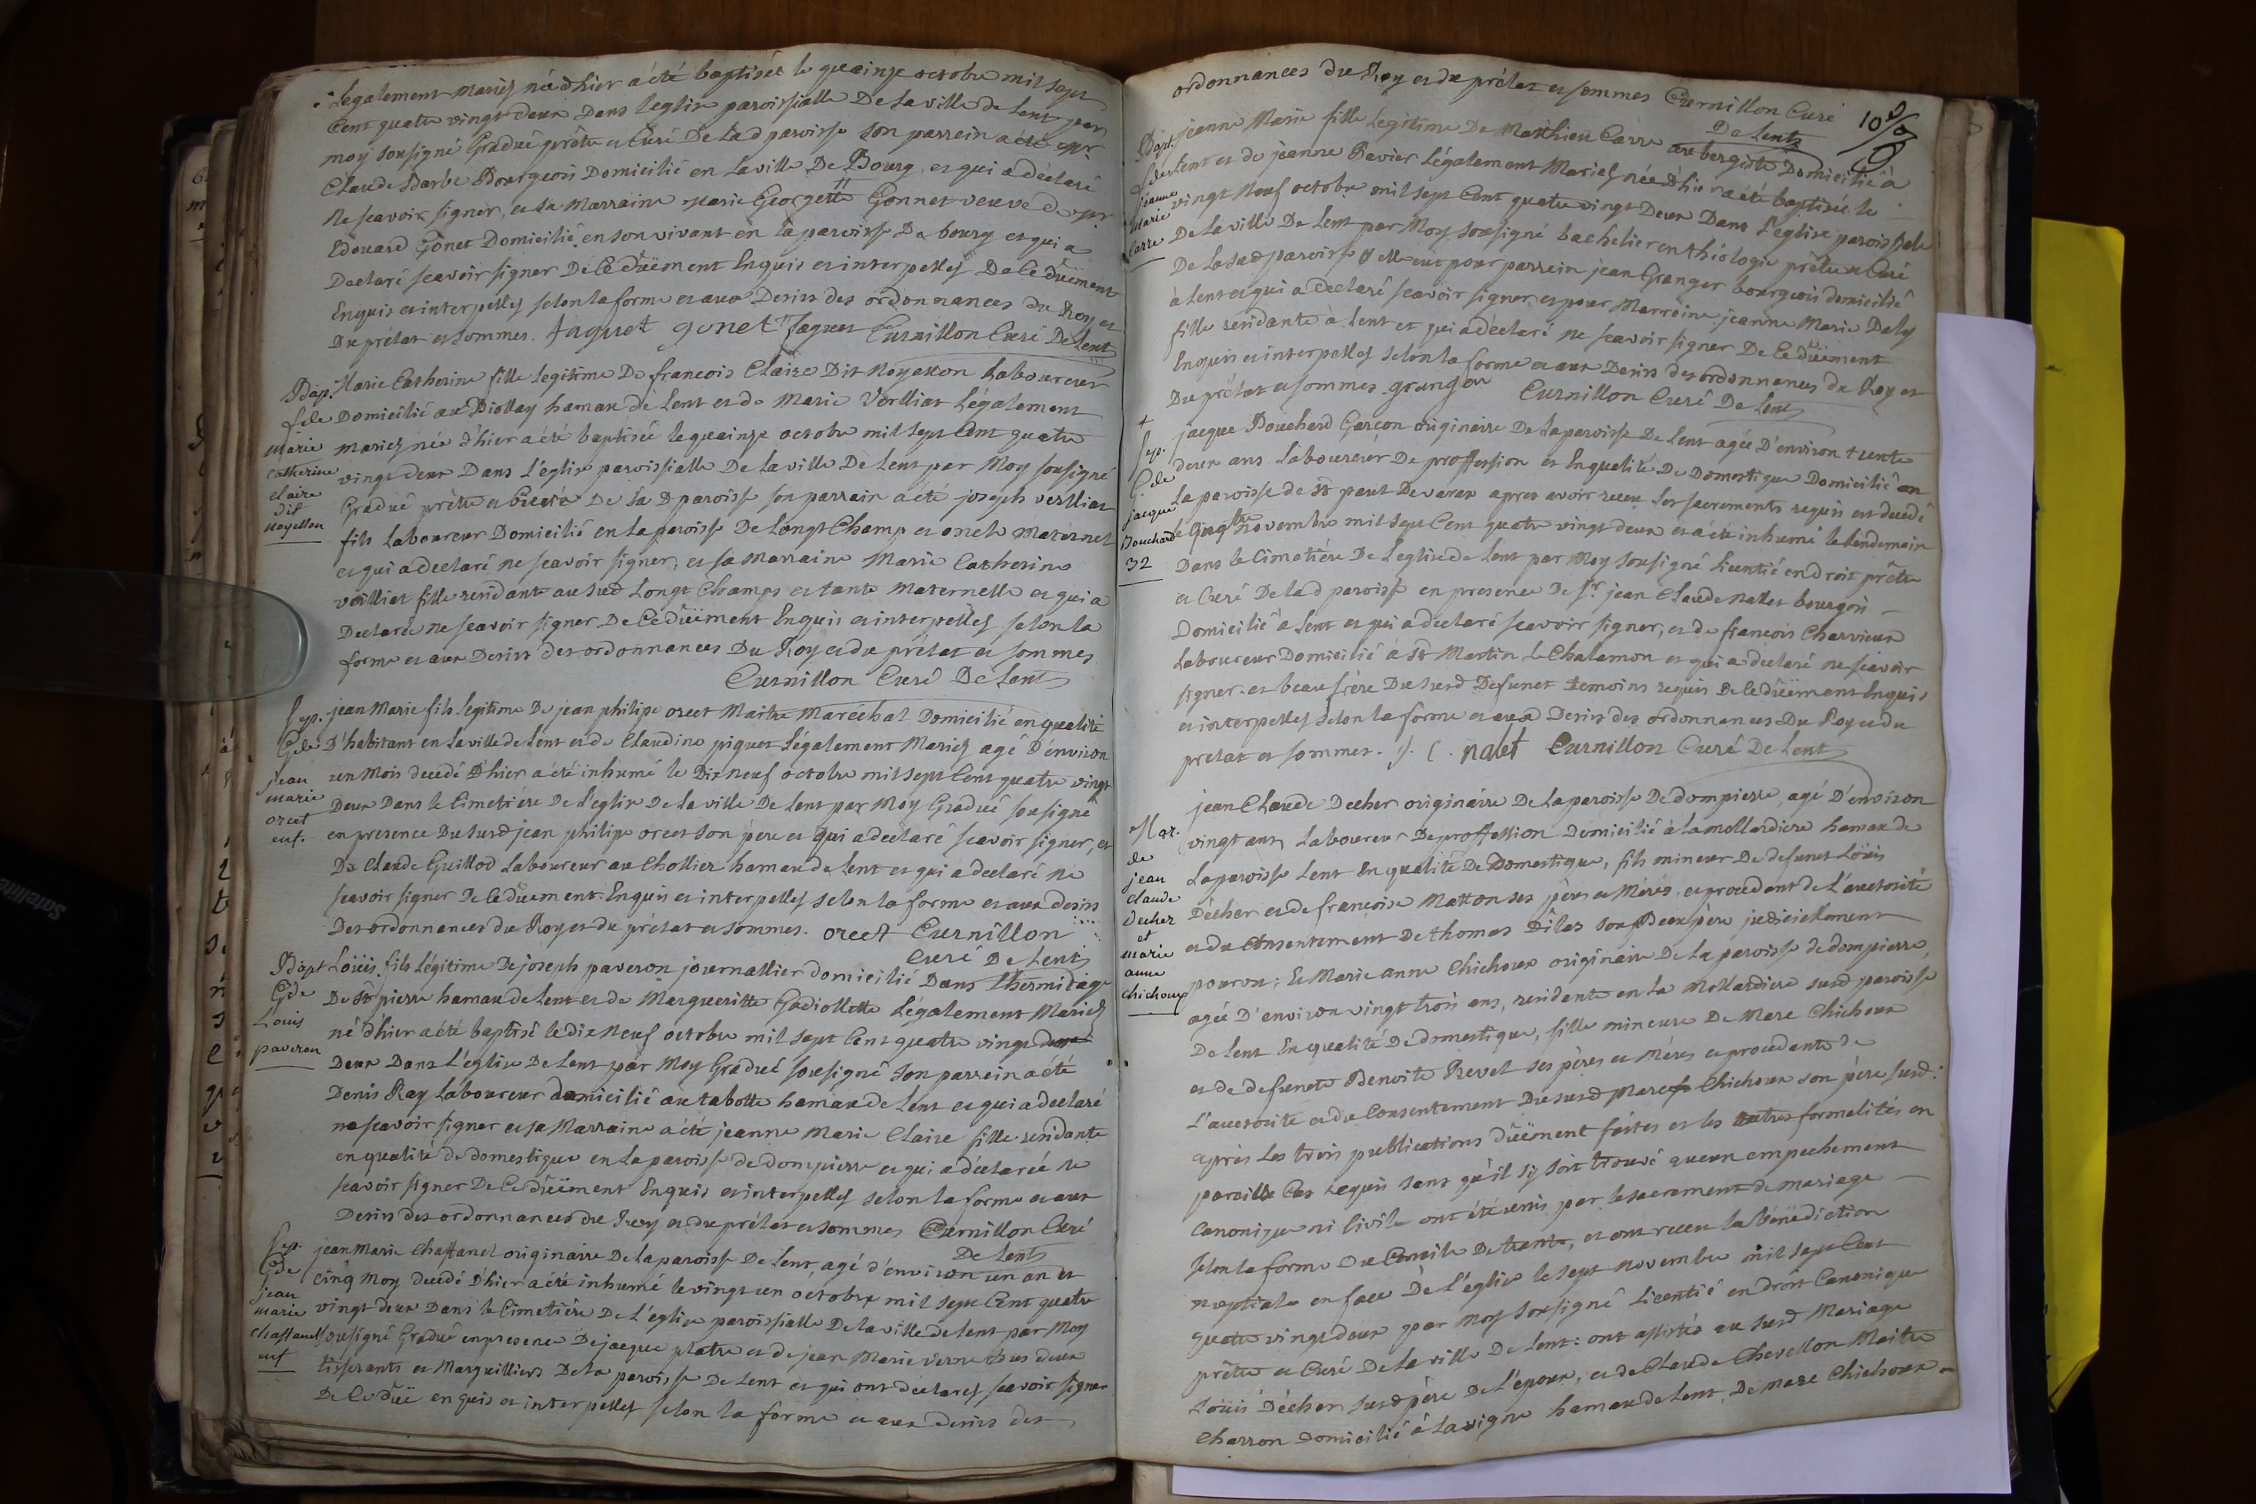 Legalement mariés né d'hier a été baptisé le quainze octobre mil sept
Cent quatre vingt deux Dans l'eglise paroissialle De la ville de Lent par
moy sousigné Gradué prêtre et Curé De lad paroisse son parrein a été
Claude Barbe Bourgeois Domicilié en la ville De Bourg, et qui a déclaré
Ne scavoir signer, et sa Marraine marie Georgette Gonnet veuve de
Edouard Gonet Domicilié en son vivant en la paroisse De bourg et qui a
Declaré scavoir signer De Ce dûëment Enquis et interpellés De Ce dûëment
Enquis et interpellés selon la forme et aux Desirs des ordonnances du Roy et
Du prélat et sommes. Jaquet gonet Curnillon Curé De Lent
Bap. Marie Catherine fille legitime De francois Claire Dit Noyellon Laboureur
f de Domicilié au Biollay hamau de Lent et de Marie Verlliat Légalement
marie mariés née d'hier a été baptisée le quainze octobre mil sept Cent quatre
Catherine vingt deux Dans L'église paroissialle De la ville De Lent par Moy sousigné
Claire Gradué prêtre et Curé De la D paroisse son parrain a été joseph verlliat
dit
Noyellon fils Laboureur Domicilié en la paroisse De Longt Champ et oncle Maternel
et qui a declaré ne scavoir signer, et sa Marraine Marie Catherine
verlliat fille residante au sud Longt Champs et tante Maternelle et qui a
Declaré ne scavoir signer De Ce dûëment Enquis et interpellés selon la
forme et aux Desirs des ordonnances Du Roy et du prélat et sommes
Curnillon Curé De Lent
Sep. jean Marie fils legitime De jean philipe orcet Maitre Maréchal Domicilié en qualité
G de D'habitant en la ville de Lent et de Claudine piquet Légalement Mariés agé D'environ
jean un Mois decedé D'hier a été inhumé le Dix neuf octobre mil sept Cent quatre vingt
marie Deux Dans le Cimetiére De L'eglise De la ville De Lent par Moy Gradué sousigné
orcet
enf. en presence Du susd jean philipe orcet son père et qui a declaré scavoir signer, et
De Claude Guillod Laboureur au Chollier hamau de Lent et qui a declaré ne
scavoir signer De Ce dûëment Enquis et interpellés selon la forme et aux desirs
Des ordonnances du Roy et du prélat et sommes. orcet Curnillon
Curé De Lent
Bapt Loüis fils Légitime De joseph paveron journallier domicilié Dans l'hermidage
G de De St pierre hamau de Lent et de Margueritte Gadiollette Légalement Mariés
Louis né d'hier a été baptisé le dix Neuf octobre mil sept Cent quatre vingt
paveron Deux Dans L'église De Lent par Moy Gradué sousigné son parrein a été
Denis Ray Laboureur domicilié au tabotte hamau de Lent et qui a declaré
ne scavoir signer et sa Marraine a été jeanne Marie Claire fille residante
en qualité de domestique en la paroisse de dompierre et qui a déclarée ne
scavoir signer De Ce dûëment Enquis et interpellés selon la forme et aux
Desirs des ordonnances du Roy et du prélat et sommes Curnillon Curé
De Lent
Sep. jean Marie Chaffanel originaire De la paroisse De Lent, agé d'environ un an et
G de cinq Moy decedé D'hier a été inhumé le vingt un octobre mil sept Cent quatre
jean
marie vingt deux Dans le Cimetiére De L'église paroissialle De la ville de Lent par Moy
Chaffanel sousigné Gradué en presence De jacque platre et de jean Marie verne tous deux
enf tisserants et Marguilliers De la paroisse De Lent et qui ont déclarés scavoir signer
De Ce düe enquis et interpellés selon la forme et aux desirs des
ordonnances du Roy et du prélat et sommes Curnillon Curé
De Lent
Bapt. jeanne Marie fille Legitime De Matthieu Carre aubergiste Domicilié à
f de Lent et de jeanne Ravier Légalement Mariés née d'hier a été baptisée le
jeanne
marie vingt Neuf octobre mil sept Cent quatre vingt Deux Dans L'église paroissiale
Carre De la ville De Lent par Moy sousigné bachelier en théologie prêtre et Curé
De la sud paroisse elle eut pour parrein jean Granger bourgeois domicilié
à Lent et qui a declaré scavoir signer, et pour Marraine jeanne Marie Daly
fille residante a Lent et qui a déclaré ne scavoir signer De Ce dûëment
Enquis et interpellés selon la forme et aux Desirs des ordonnances du Roy et
Du prélat et sommes granger Curnillon Curé De Lent
Sep. jacque Bouchard Garçon originaire De la paroisse De Lent agée D'environ trente
G de deux ans Laboureur De proffession et En qualité De Domestique Domicilié en
jacque La paroisse de St paul De varax apres avoir receu les sacrements requis est decedé
Bouchard le novembre mil sept Cent quatre vingt deux et a été inhumé le Lendemain
32 Dans le Cimetiére De L'eglise de Lent par Moy sousigné Licentié en Droit prêtre
et Curé De la d paroisse en presence De Sr jean Claude Nallet bourgois
Domicilié à Lent et qui a declaré scavoir signer, et de francois Charvieux
Laboureur Domicilié à St Martin le Chalamon et qui a declaré ne scavoir
signer et beau frère Du susd Defunct temoins requis De Ce dûëment Enquis
et interpellés selon la forme et aux Desirs des ordonnances Du Roy et du
prelat et sommes. j. C. nalet Curnillon Curé De Lent
Mar. jean Claude Decher originaire De la paroisse De dompierre, agé D'environ
de vingt ans, Laboureur De proffession Domicilié à la mollardiere hamau de
jean La paroisse Lent En qualité De Domestique, fils mineur De defunct Loüis
Claude
Decher Décher et de francoise Matton ses péres et Méres et procedant de L'auctorité
et
marie et du Consentement De thomas Dîlas son Beaupère judiciellement
anne pourvu; Et Marie anne Chichoux originaire De la paroisse de dompierre
Chichoux agée D'environ vingt trois ans, residante en La Mollardiere susd paroisse
De Lent En qualité De domestique, fille mineure De Marc Chichoux
et de defuncte Benoite Revel ses péres et Méres et procedante de
L'auctorité et du Consentement Du susd Marc Chichoux son père susd:
après Les trois publications dûëment faites et les autres formalités en
pareille Cas requis sans qu'il sy soit trouvé aucun empechement
Canonique ni Civile ont été unis par le sacrement de mariage
selon la forme Du Concile De trente, et ont receu la Bénédiction
Nuptiale en face De L'église le sept novembre mil sept Cent
quatre vingt deux par moy sousigné Licentié en Droit Canonique
prêtre et Curé De la ville De Lent: ont assistés au susd Mariage
Loüis Décher susd père De L'epoux, et de Claude Chevellon Maitre
Charron Domicilié à La vigne hamau de Lent, De Marc Chichoux